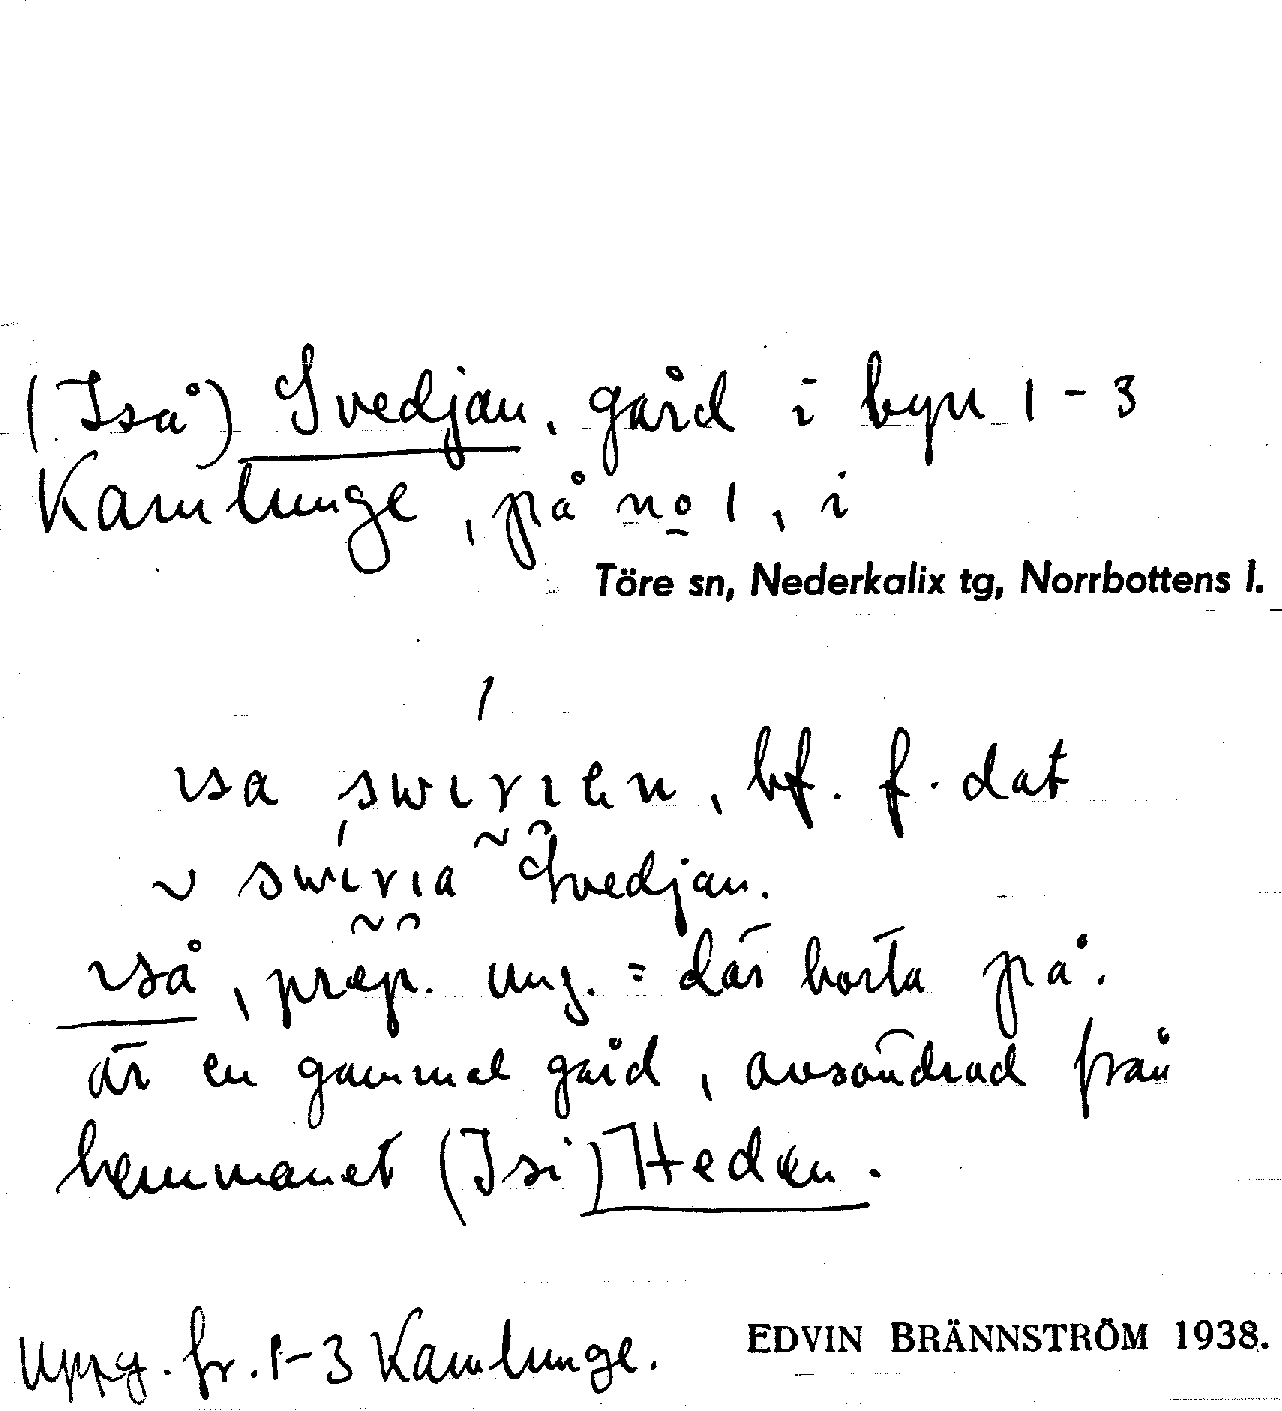 (Iså) Svedjan, gård i byn 1-3
Kamlunge, på no 1, i
Töre sn, Nederkalix tg, Norrbottens l.
bf. f. dat
Svedjan.
ıså, præp. ung. = där borta på.
är en gammal gård, avsöndrad från
hemmanet (Isi) Heden.
Uppg. fr. 1-3 Kamlunge.
EDVIN BRÄNNSTRÖM 1938.